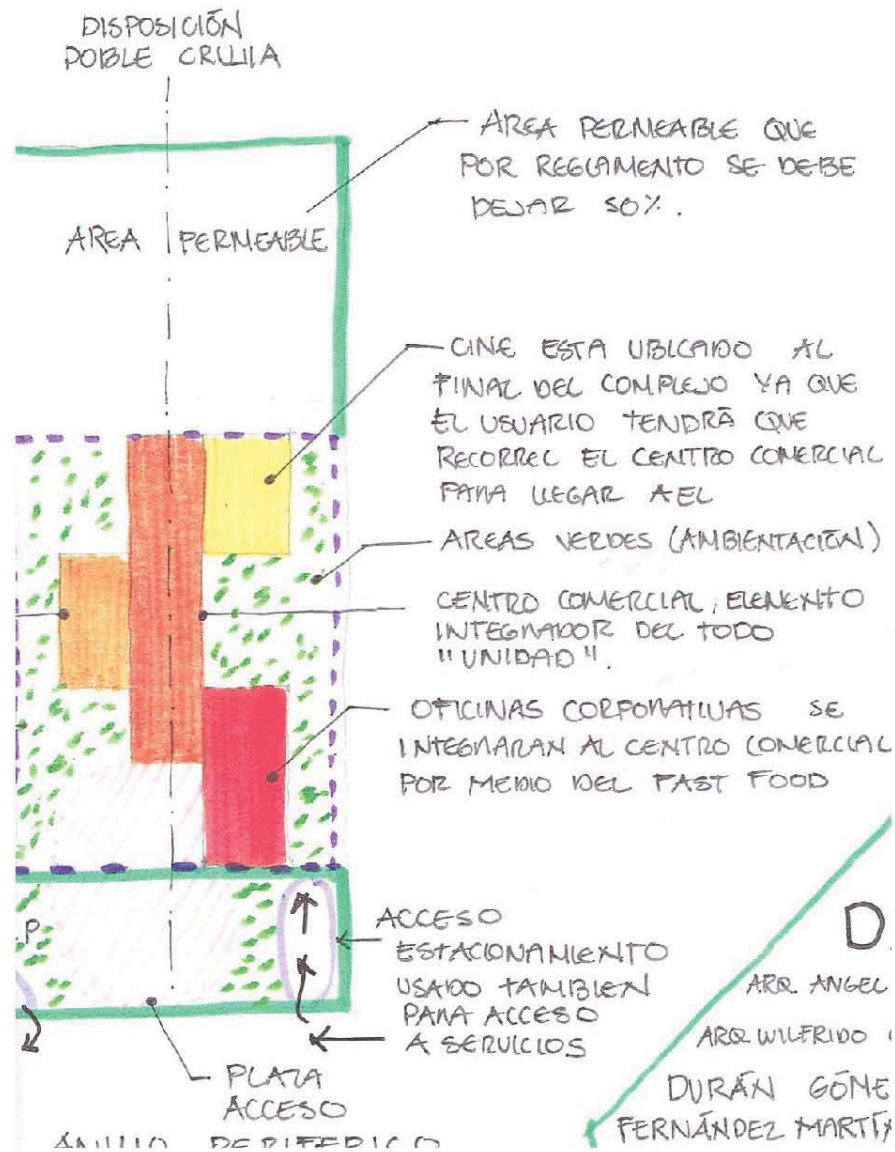 DISPOSICIÓN
DOBLE CRUJIA
AREA PERMEABLE QUE
POR REGLAMENTO SE DEBE
DEJAR 50%.
AREA PERMEABLE
CINE ESTA UBICADO AL
FINAL DEL COMPLEJO YA QUE
EL USUARIO TENDRÁ QUE
RECORRER EL CENTRO COMERCIAL
PARA LLEGAR A EL
AREAS VERDES (AMBIENTACIÓN)
CENTRO COMERCIAL, ELEMENTO
INTEGRADOR DEL TODO
"UNIDAD".
OFICINAS CORPORATIVAS SE
INTEGRARAN AL CENTRO COMERCIAL
POR MEDIO DEL FAST FOOD
.P.
ACCESO
ESTACIONAMIENTO
USADO TAMBIEN
PARA ACCESO
A SERVICIOS
PLAZA
ACCESO
ANILLO PERIFERICO
D
ARQ. ANGEL
ARQ. WILFRIDO
DURÁN GÓME
FERNÁNDEZ MARTÍN